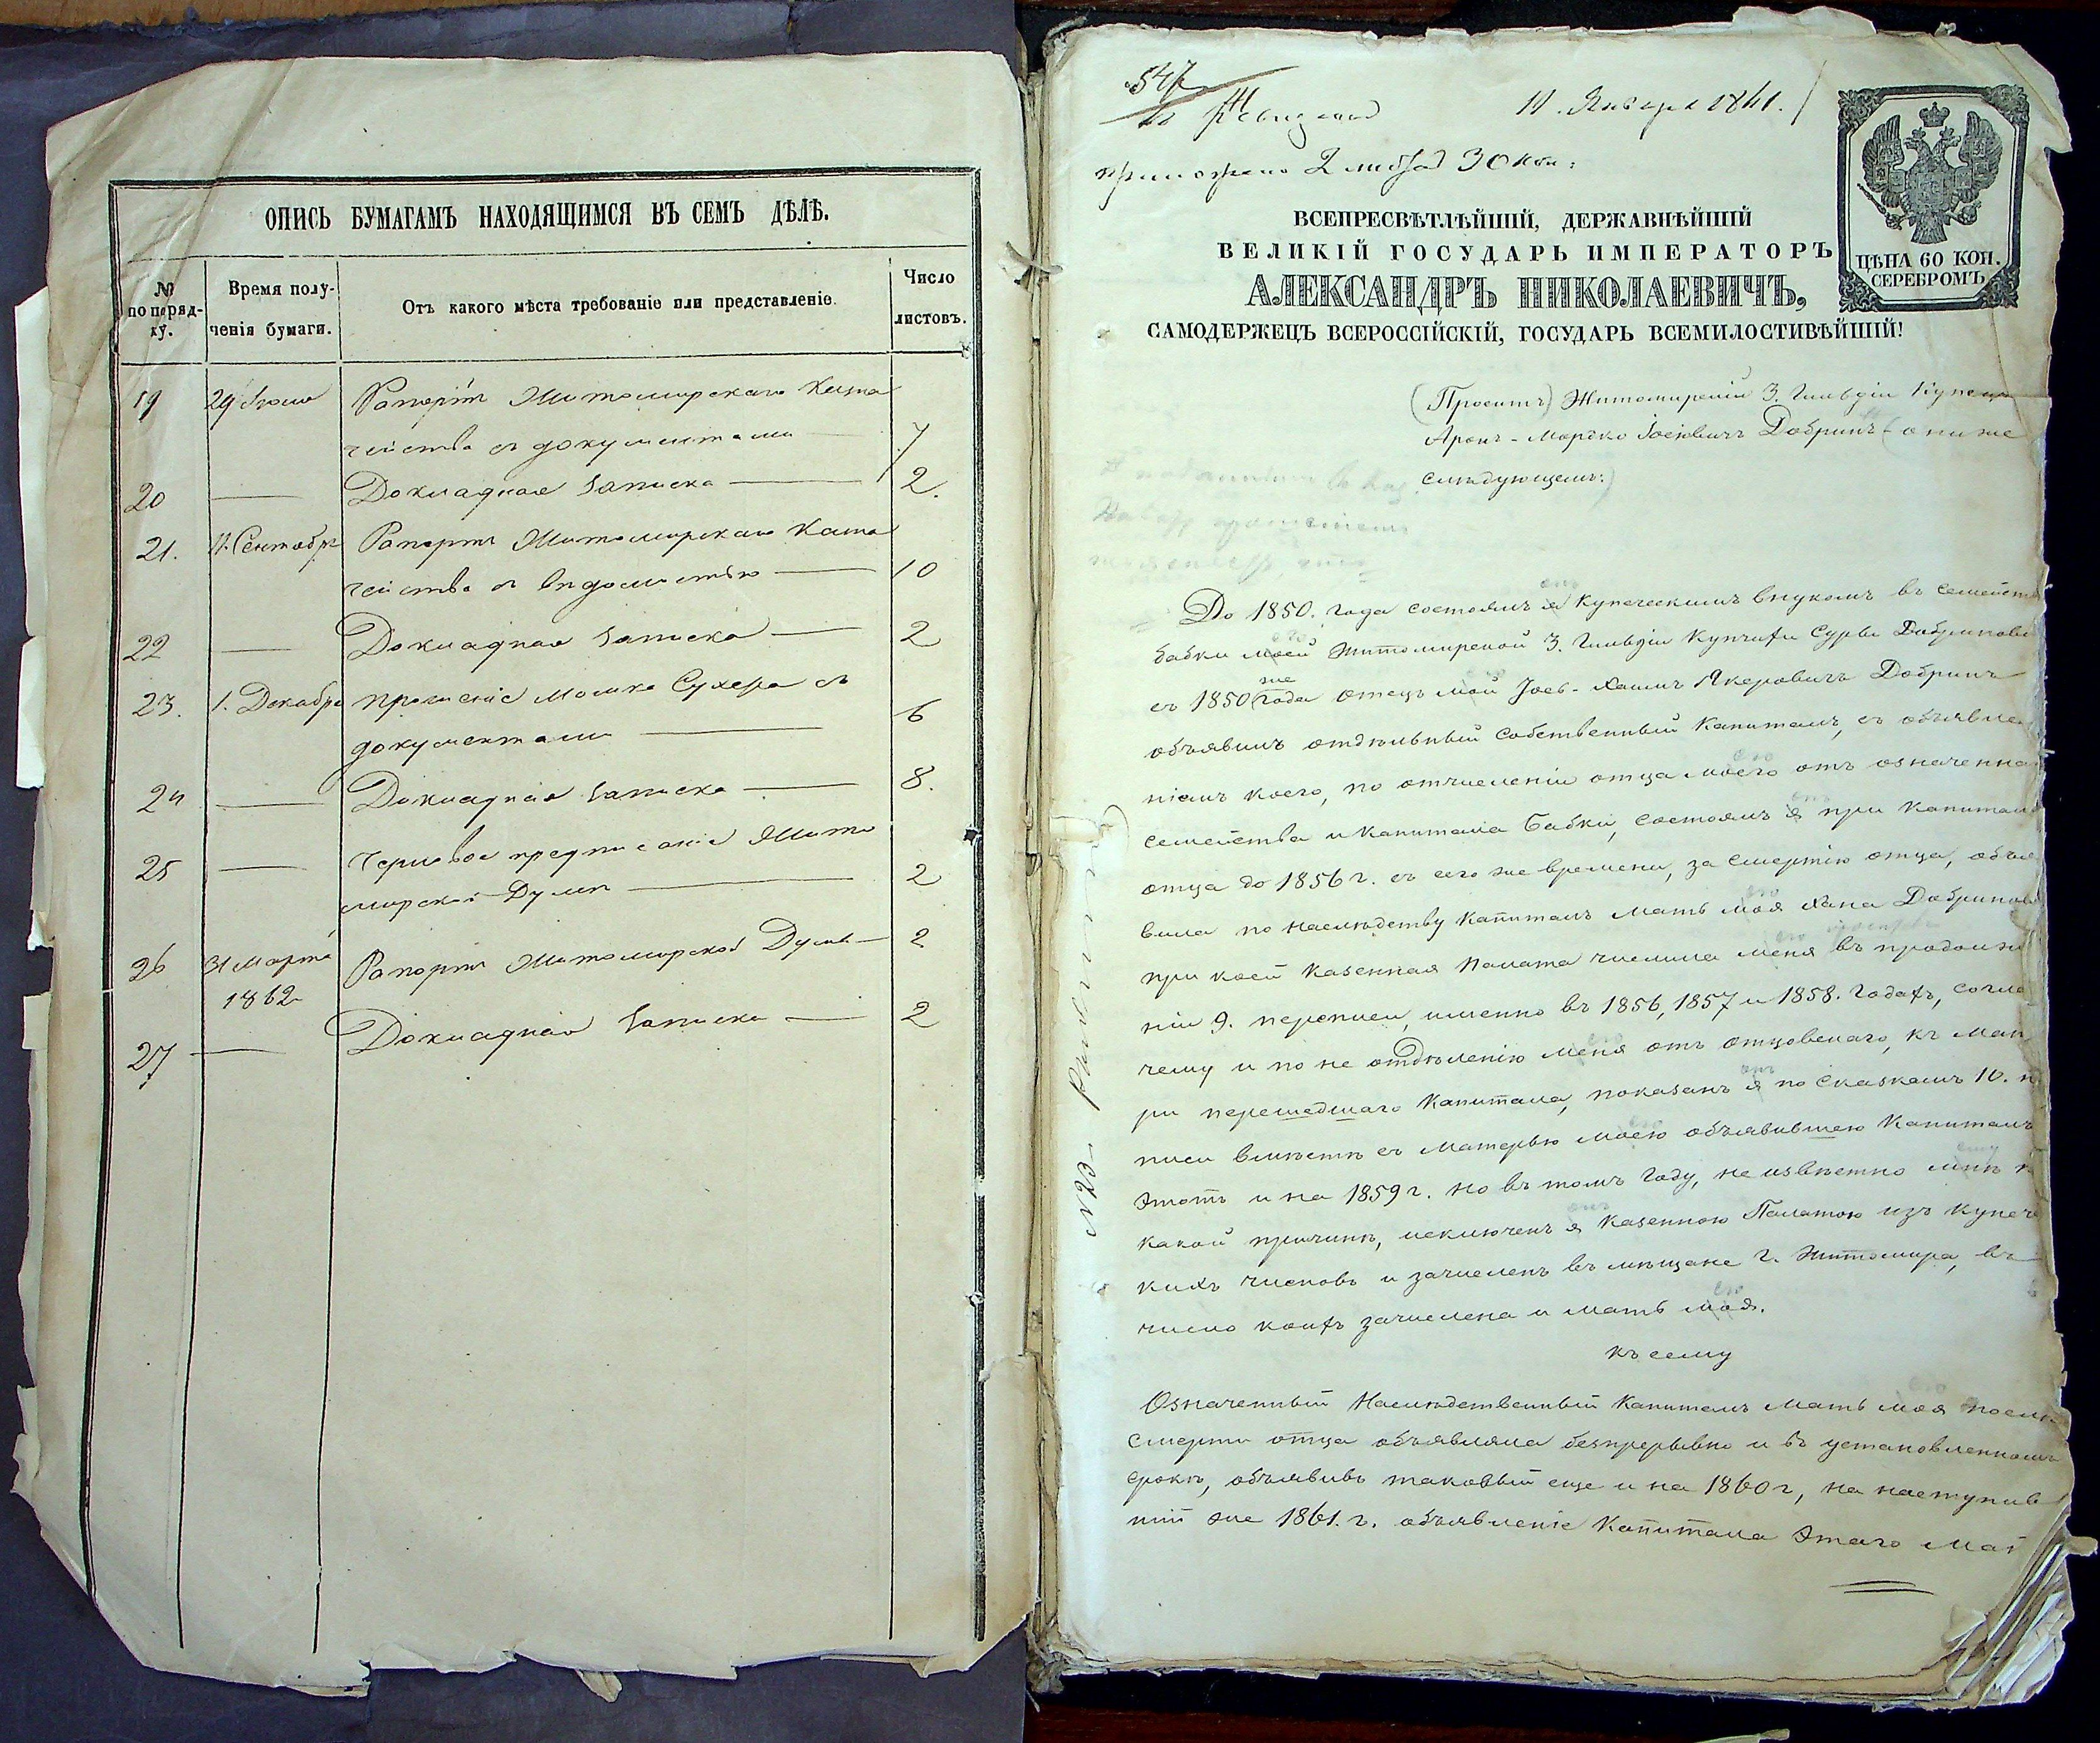 ОПИСЬ БУМАГАМЪ НАХОДЯЩИМСЯ ВЪ СЕМЪ ДѢЛѢ.
№ по порядку.
Время полученія бумаги.
Отъ какого мѣста требованіе или представленіе.
Число листовъ.
19 29 Іюля Рапортъ Житомирскаго Казна
чейства съ документами 7
20 Докладная записка 2.
21. 11. Сентября Рапортъ Житомирскаго Казна
чейства съ вѣдомостью 10
22 Докладная записка 2
23. 1. Декабря прошеніе Мошка Сухера съ
документами 6
24 Докладная записка 8.
25 Черновое предписаніе Жито
мирской Думѣ 2
26 31 Марта 1862 Рапортъ Житомирской Думы 2
27 Докладная записка 2
547
11. Января 1861.
приложено 2 листа 30 коп:
ЦѢНА 60 КОП.
СЕРЕБРОМЪ
ВСЕПРЕСВѢТЛѢЙШІЙ, ДЕРЖАВНѢЙШІЙ
ВЕЛИКІЙ ГОСУДАРЬ ИМПЕРАТОРЪ
АЛЕКСАНДРЪ НИКОЛАЕВИЧЪ,
САМОДЕРЖЕЦЪ ВСЕРОССІЙСКІЙ, ГОСУДАРЬ ВСЕМИЛОСТИВѢЙШІЙ!
(Проситъ) Житомирскій 3. Гильдіи Купецъ
Аронъ-Мордко Іосіовичъ Добринъ (о ниже
слѣдующемъ:)
До 1850. года состоялъ я онъ купеческимъ внукомъ въ семейств
бабки моей его Житомирской 3. Гильдіи Купчихи Суры Добриновой
съ 1850 же года отецъ мой Іось-Хаимъ Янкеровичъ Добринъ
объявилъ отдѣльный собственный Капиталъ, съ объявле
ніемъ коего, по отчисленіи отца моего его отъ означенна
семейства и Капитала Бабки, состоялъ я онъ при Капитал
отца до 1856 г. съ сего же времени, за смертію отца, объя
вила по наслѣдству Капиталъ Мать моя его Хана Добринова
при коей Казенная Палата числила меня его въ продолже
ніи 9. переписи, именно въ 1856, 1857 и 1858. годахъ, согла
чему и по не отдѣленію меня его отъ отцовскаго, къ мате
ри перешедшаго Капитала, показанъ я онъ по сказкамъ 10. п
писи вмѣстѣ съ Матерью моею его объявившею Капиталъ
этотъ и на 1859 г. но въ томъ году, не извѣстно мнѣ ему п
какой причинѣ, исключенъ я онъ Казенною Палатою изъ купече
кихъ числовъ и зачисленъ въ мѣщане г. Житомира, въ
число коихъ зачислена и мать моя его.
къ сему
Означенный Наслѣдственный Капиталъ Мать моя его послѣ
смерти отца объявляла безпрерывно и въ установленномъ
срокѣ, объявивъ таковый еще и на 1860 г, на наступив
шій же 1861. г. объявленіе Капитала этаго Мат